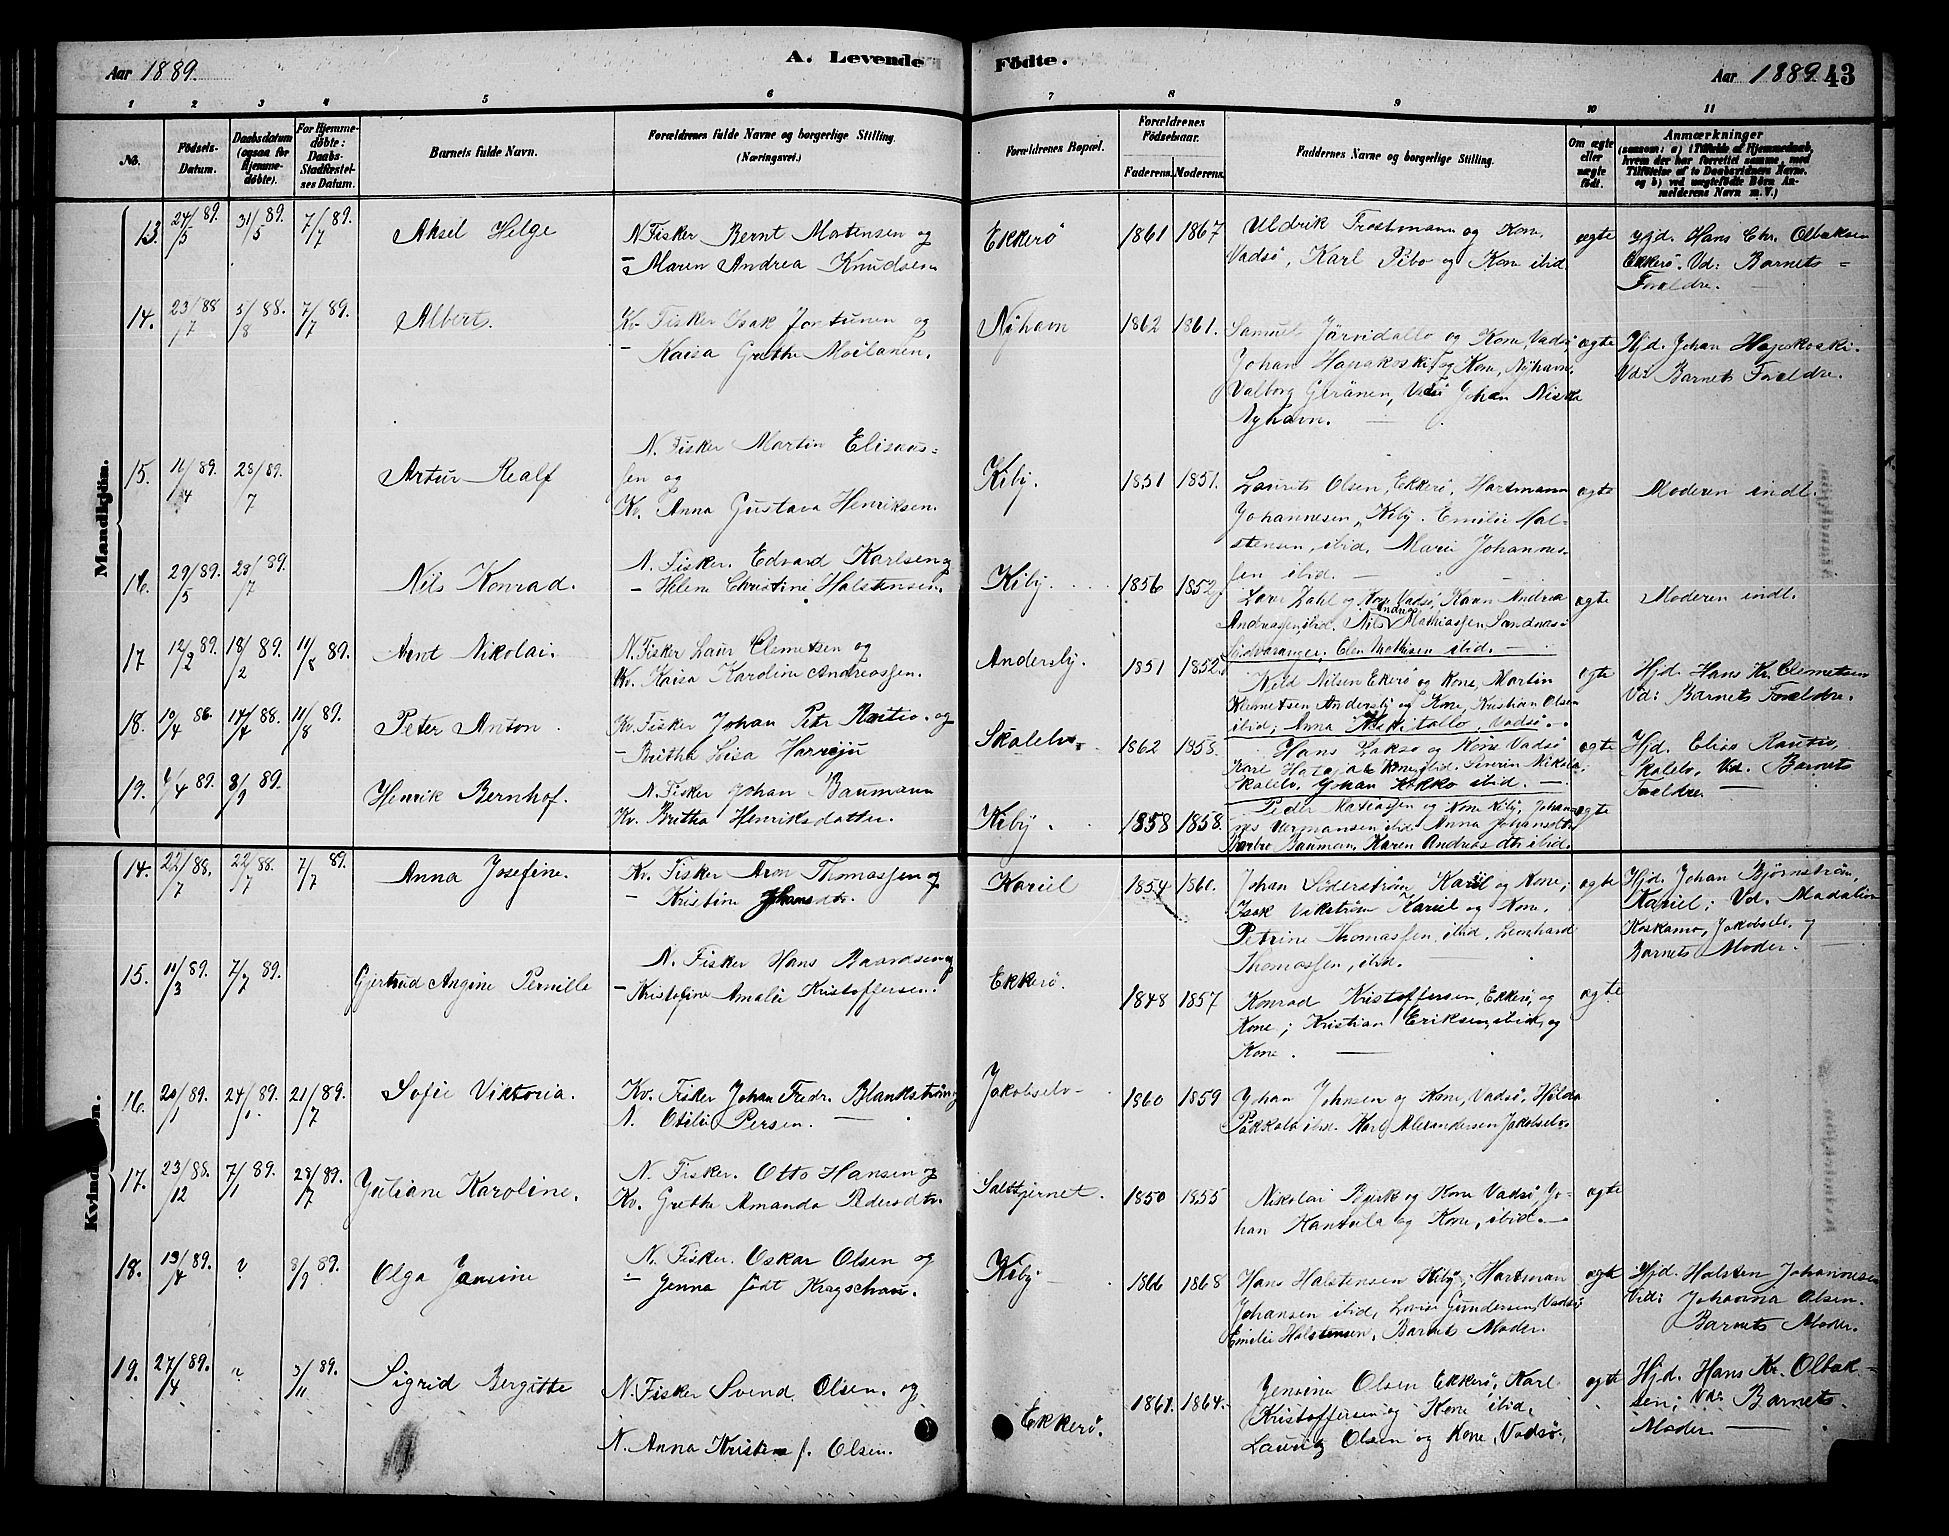 Aar 1889.
A. Levende Födte.
Aar 1889
43
1 2 3 4 5 6 7 8 9 10 11
No.
Födsels-Datum.
Daabsdatum (ogsaa for Hjemme-döbte).
For Hjemme-döbte: Daabs-Stadfæstel-ses Datum.
Barnets fulde Navn.
Forældrenes fulde Navne og borgerlige Stilling.
(Næringsvei.)
Forældrenes Bopæl.
Forældrenes Födselsaar.
Faderens. Moderens.
Faddernes Navne og borgerlige Stilling.
Om ægte eller uægte födt.
Anmærkninger
(saasom: a) i Tilfælde af Hjemmedaab, hvem der har forrettet samme, med Tilföielse af to Daabsvidners Navne. og b) ved uægtefödte Börn An-melderens Navn m. V.)
Mandkjön.
13. 24/5 89. 31/5 89. 7/7 89. Aksel Helge
N Fisker Bernt Mortensen og
– Maren Andrea Knudsen
Ekkerö 1861 1867
Uldrik Trostmann og Kone,
Vadsö, Karl Pibo og Kone ibid.
ægte
Hjd. Hans Chr. Olbaksen
Ekkerö. Vd: Barnets
Forældre.
14. 23/7 88 5/8 88. 7/7 89. Albert.
Kv. Fisker Isak Jortunen og
– Kaisa Grethe Moilanen.
Nÿhavn 1862 1861.
Samuel Järvidallo og Kone, Vadsö,
Johan Hapakoski og Kone, Nyhavn,
Valborg Geränen, Vadsö Johan Niska
Nyhavn.
ægte
Hjd. Johan Hapakoski.
Vd: Barnets Forældre.
15. 11/4 89. 28/7 89. Artur Realf
N. Fisker Martin Elisaas-
sen og
Kv. Anna Gustava Henriksen.
Kiby. 1851 1851.
Laurits Olsen, Ekkerö, Hartmann
Johannesen, Kiby. Emilie Hal-
stensen, ibid. Marie Johannes-
sen ibid.
ægte
Moderen indl.
16. 29/5 89. 28/7 89. Nils Konrad.
N. Fisker. Edvard Karlsen og
– Helene Christine Halstensen.
Kiby. 1856 1852
Dahl og Kone Vadsö, Karen Andrea
Andreassen, ibid. Nils Andreas Mathiassen Sandnæs
Sydvaranger, Elen Mathisen ibid.
ægte
Moderen indl.
17 12/2 89. 18/2 89. 11/8 89. Arnt Nikolai.
N. Fisker Lars Clemetsen og
Kv. Kaisa Karoline Andreassen.
Andersby. 1851 1852.
Nilsen Ekkerö og Kone, Martin
Klemetsen Andersby og Kone, Kristian Olsen
ibid; Anna Vadsö.
ægte
Hjd. Hans Kr. Clemetsen
Vd: Barnets Forældre.
18. 10/4 86. 14/4 88. 11/8 89. Peter Anton
Kv. Fisker Johan Petr Rautio. og
– Britha Lisa Harreju
Skalelv. 1862 1858.
Hans Lakso og Kone Vadsö
Karl Kone ibid. Severin Nikola.
Skalelv. Johan ibid.
ægte
Hjd. Elias Rautio,
Skalelv. Vd. Barnets
Forældre
19. /4 89. 8/9 89. Henrik Bernhof.
N. Fisker Johan Baumann
Kv. Britha Henriksdatter.
Kiby. 1858 1858.
Peder Matiassen og Kone Kiby, Johan-
nes Hermansen ibid Anna Johansdtr
Barbro Bauman, Karen Andreas dtr ibid.
ægte
Kvindekjön.
14. 22/7 88. 22/7 88. 7/7 89. Anna Josefine.
Kv. Fisker Aron Thomassen og
– Kristine Johans dtr.
Kariel 1854 1860.
Johan Söderström, Kariel og Kone,
Isak Vikström Kariel og Kone,
Petrine Thomassen, ibid, Leonhard
Thomassen, ibid.
ægte
Hjd. Johan Bjørnström,
Kariel; Vd. Madalin
Koskamo, Jakobselv.
Barnets Moder.
15. 11/3 89. 7/7 89. Gjertrud Angine Pernille
N. Fisker Hans Baardsen og
– Kristofine Amalie Kristoffersen.
Ekkerö. 1848 1857
Konrad Kristoffersen, Ekkerö, og
Kone; Kristian Eriksen, ibid, og
Kone.
ægte
16. 20/1 89. 24/1 89. 21/7 89. Sofie Viktoria.
Kv. Fisker Johan Fredr. Blankström og
N. Otilie Persen.
Jakobselv 1860 1859
Johan Johnsen og Kone, Vadsö, Hilda
Pakkala ibid. Karl Alexandersen Jakobselv.
17. 23/12 88. 7/1 89. 28/7 89. Juliane Karoline.
N. Fisker. Otto Hansen og
Kv. Grethe Amanda Pedersdtr.
Saltfjernet. 1850 1855
Nikolai Bjerk og Kone Vadsö, Jo-
han Hansila og Kone, ibid.
ægte
18. 19/4 89. " 8/9 89. Olga Jansine
N. Fisker. Oskar Olsen og
– Jenna födt Kragschau.
Kiby 1866 1868
Hans Halstensen Kiby, Hartman
Johansen ibid, Lovise Gundersen, Vadsö,
Emilie Halstensen, Barnets Moder.
ægte
Hjd. Halsten Johannesen
Vid: Johanna Olsen.
Barnets Moder.
19. 27/4 89. " 3/11 89. Sigrid Bergitte
N. Fisker Svend Olsen. og
N. Anna Kristine f. Olsen.
Ekkerö. 1861. 1864.
Jensine Olsen Ekkerö, Karl
Kristoffersen og Kone ibid,
Lauritz Olsen og Kone, Vadsö,
ægte
Hjd. Hans Kr. Olbak-
sen; Vd: Barnets
Moder.